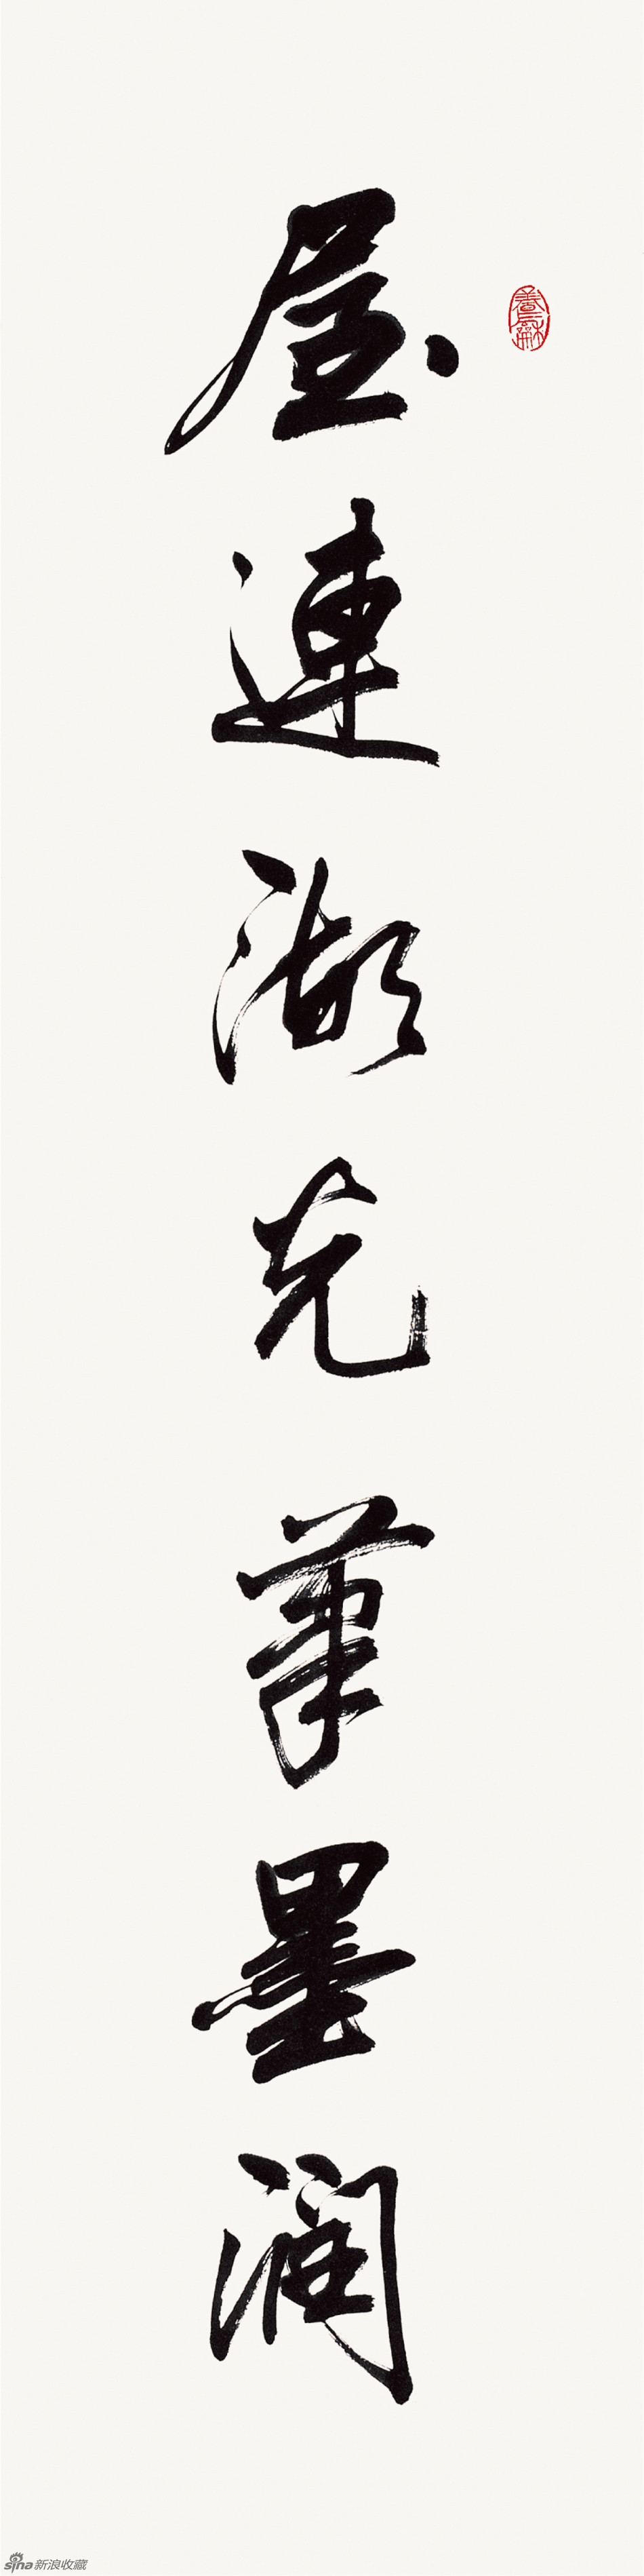 屋連湖光筆墨潤
sina 新浪收藏